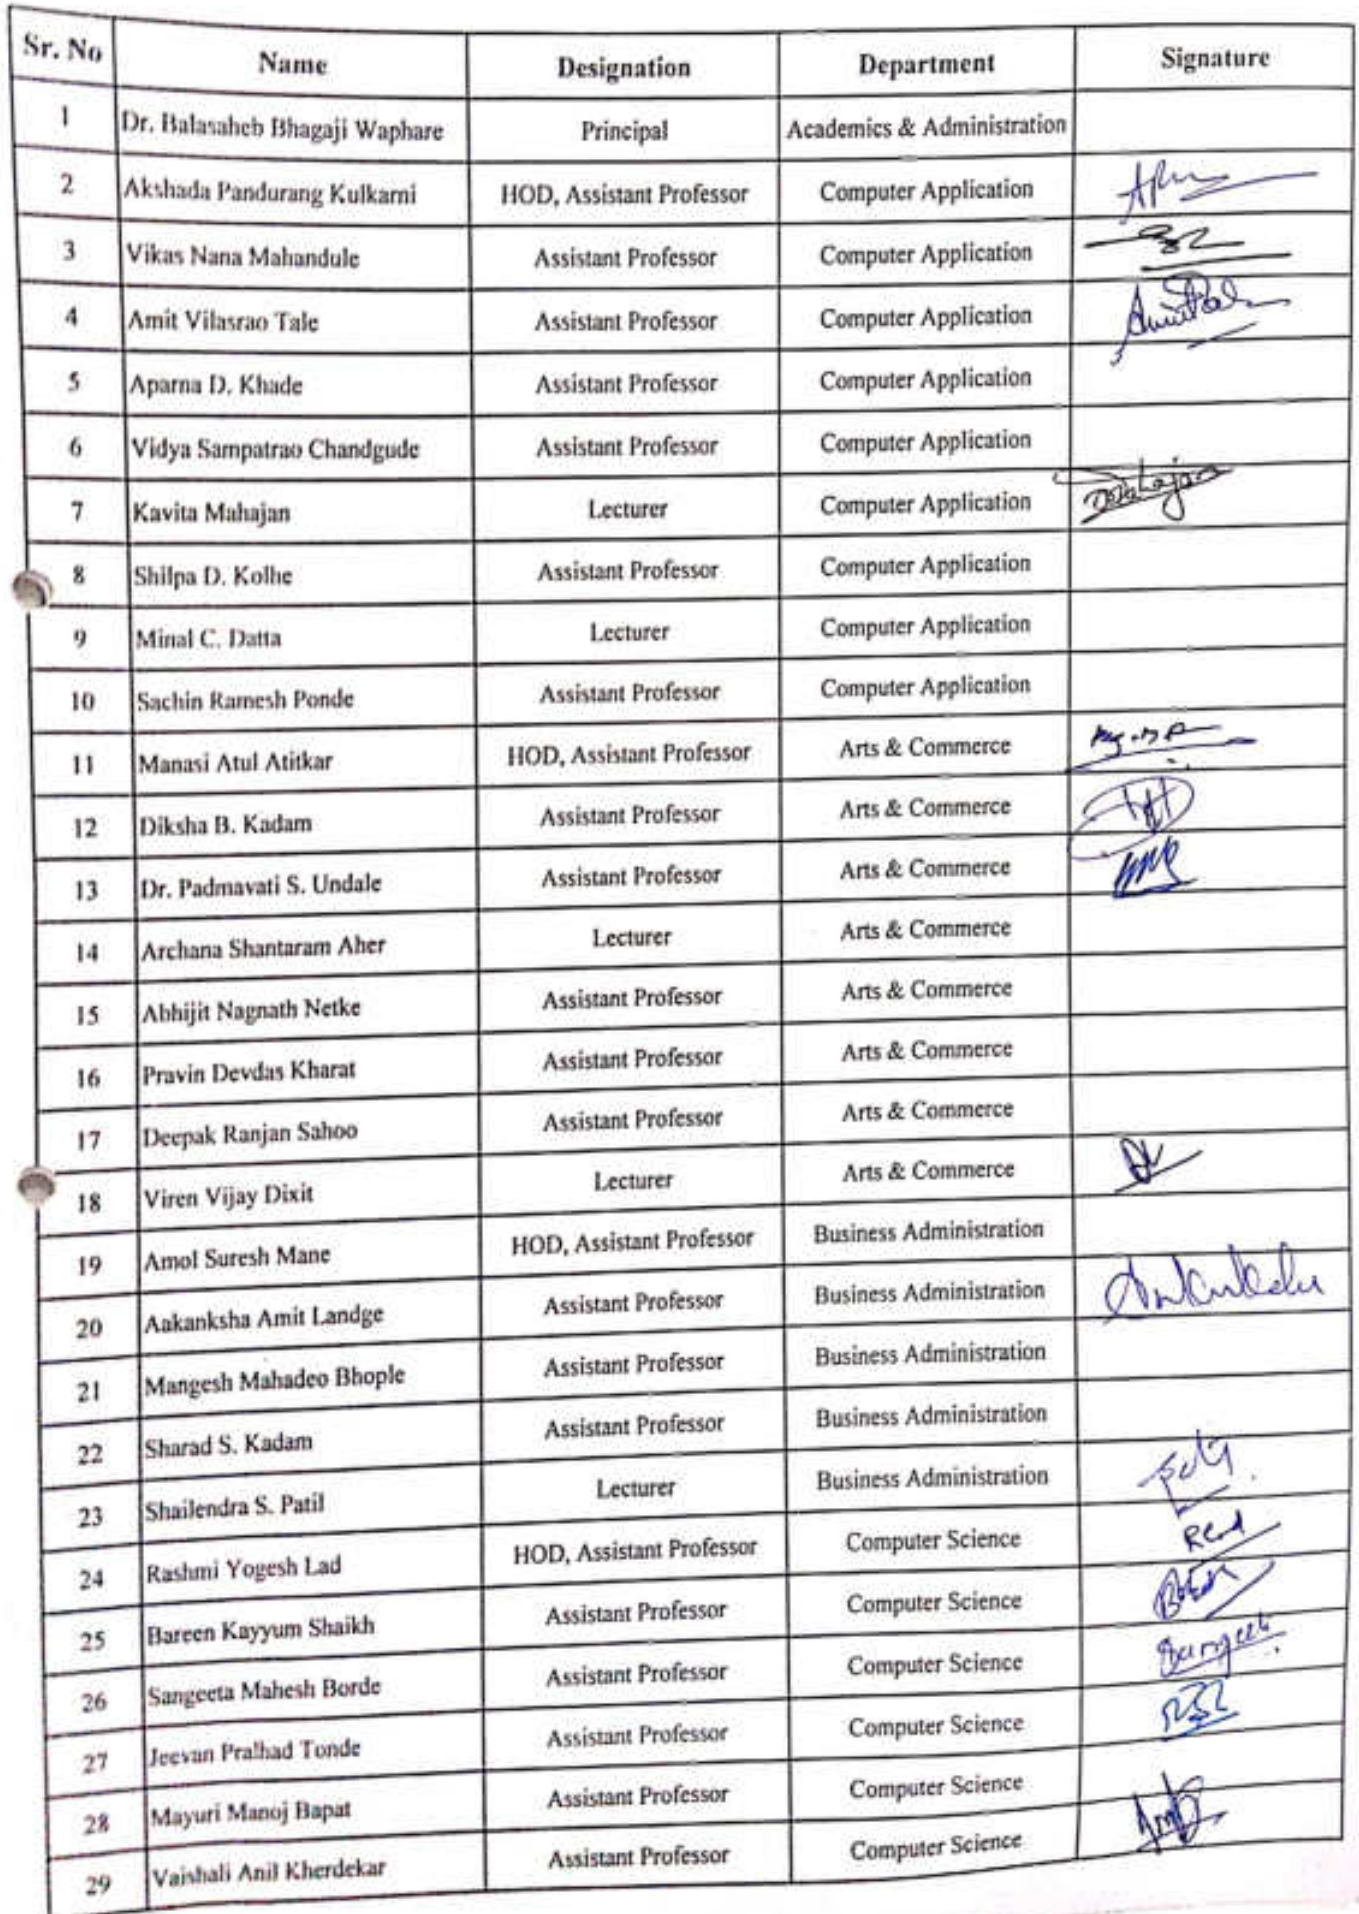 Sr. No Name Designation Department Signature
1 Dr. Balasaheb Bhagaji Waphare Principal Academics & Administration
2 Akshada Pandurang Kulkarni HOD, Assistant Professor Computer Application
3 Vikas Nana Mahandule Assistant Professor Computer Application
4 Amit Vilasrao Tale Assistant Professor Computer Application
5 Aparna D. Khade Assistant Professor Computer Application
6 Vidya Sampatrao Chandgude Assistant Professor Computer Application
7 Kavita Mahajan Lecturer Computer Application
8 Shilpa D. Kolhe Assistant Professor Computer Application
9 Minal C. Datta Lecturer Computer Application
10 Sachin Ramesh Ponde Assistant Professor Computer Application
11 Manasi Atul Atitkar HOD, Assistant Professor Arts & Commerce
12 Diksha B. Kadam Assistant Professor Arts & Commerce
13 Dr. Padmavati S. Undale Assistant Professor Arts & Commerce
14 Archana Shantaram Aher Lecturer Arts & Commerce
15 Abhijit Nagnath Netke Assistant Professor Arts & Commerce
16 Pravin Devdas Kharat Assistant Professor Arts & Commerce
17 Deepak Ranjan Sahoo Assistant Professor Arts & Commerce
18 Viren Vijay Dixit Lecturer Arts & Commerce
19 Amol Suresh Mane HOD, Assistant Professor Business Administration
20 Aakanksha Amit Landge Assistant Professor Business Administration
21 Mangesh Mahadeo Bhople Assistant Professor Business Administration
22 Sharad S. Kadam Assistant Professor Business Administration
23 Shailendra S. Patil Lecturer Business Administration
24 Rashmi Yogesh Lad HOD, Assistant Professor Computer Science
25 Bareen Kayyum Shaikh Assistant Professor Computer Science
26 Sangeeta Mahesh Borde Assistant Professor Computer Science
27 Jeevan Pralhad Tonde Assistant Professor Computer Science
28 Mayuri Manoj Bapat Assistant Professor Computer Science
29 Vaishali Anil Kherdekar Assistant Professor Computer Science